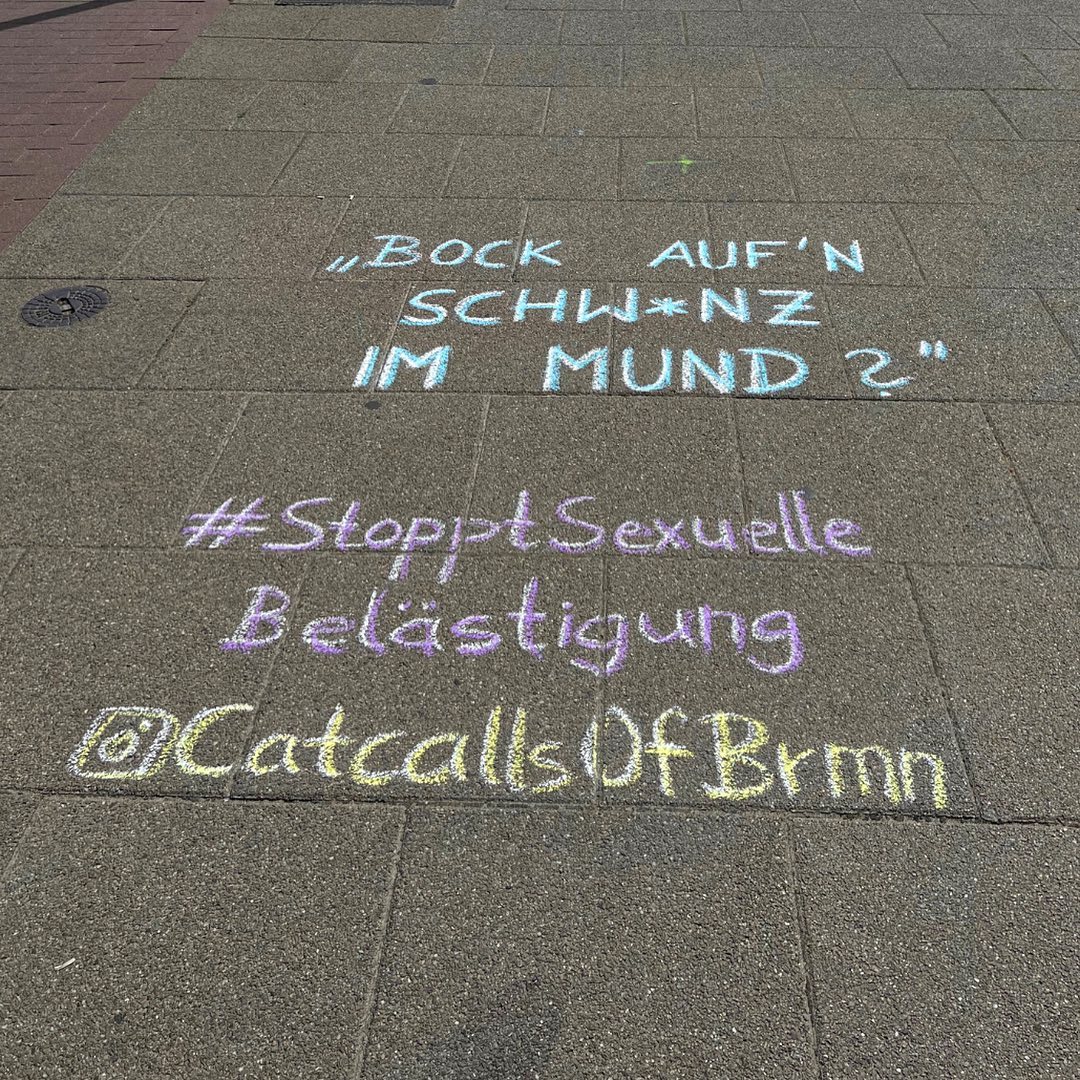 „BOCK AUF'N
SCHW*NZ
IM MUND?"
#StopptSexuelle
Belästigung
@CatcallsOfBrmn